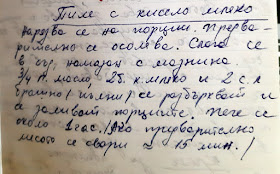 Пиле с кисело мляко
нарязва се на порции. Предва-
рително се осолява. Слага се
в съд, намазан с мазнина
3/4 п. масло, 25 к. мляко и 2 с. л.
брашно /пълни/ се разбъркват и
се заливат порциите. Пече се
около 1 час. /Ако предварително
месото се свари 2 - 15 мин./